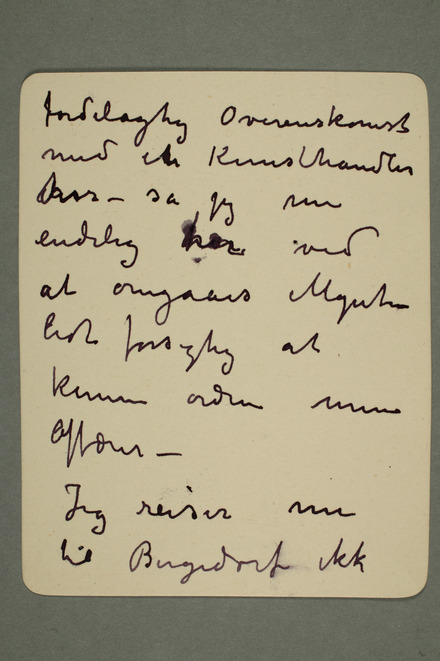 fordelagtig Overenskomst
med en Kunsthandler
her – så jeg nu
endelig ved
at omgaaes Mynten
lidt forsigtig at
kunne ordne mine
Affærer –
Jeg reiser nu
til Bergedorf ikk